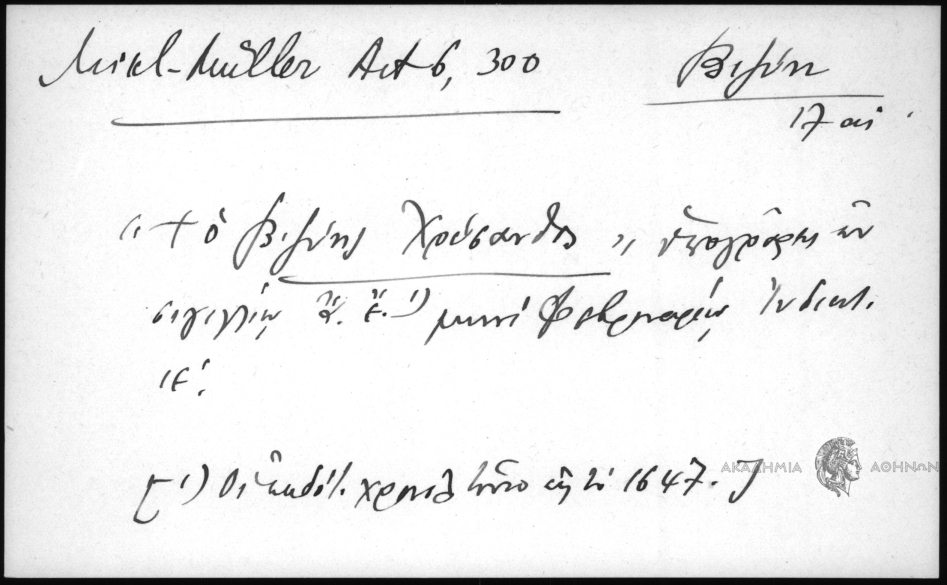 Mikl-Müller Act 6, 300
Βιζύη
17 αἰ.
“+ ὁ Βιζύης Χρύσανθος„ ὑπογράφει ἐν
σιγιλλίῳ ἄ. ἔ. ¹) μηνὶ Φεβρουαρίῳ Ἰνδικτ.
ιε΄.
[¹) Οἱ ἐκδότ. χρονολ τοῦτο εἰς τὸ 1647.]
ΑΚΑΔΗΜΙΑ ΑΘΗΝΩΝ